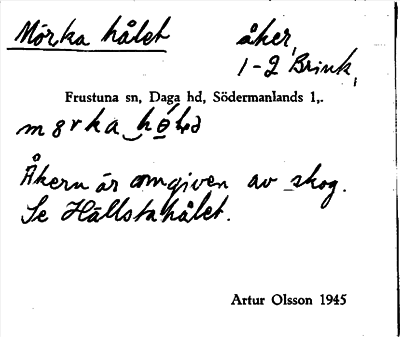 Mörka hålet
åker,
1-2 Brink,
Frustuna sn, Daga hd, Södermanlands l,.
Åkern är omgiven av skog.
Se Hällstahålet.
Artur Olsson 1945